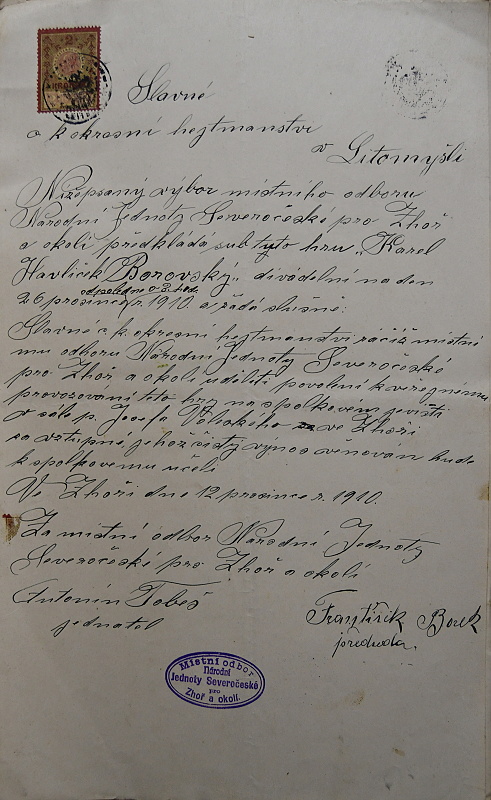 Slavné
c k okresní hejtmanství
v Litomyšli
Nížepsaný výbor místního odboru
Národní Jednoty Severočeské pro Zhoř
a okolí předkládá sub tyto hru „Karel
Havlíček Borovský" divadelní na den
odpoledne o 3. hod.
26 prosince r. 1910. a žádá slušně:
Slavné c. k. okresní hejtmanství ráčiž místní
mu odboru Národní Jednoty Severočeské
pro Zhoř a okolí uděliti povolení k veřejnému
provozování této hry na spolkovém jevišti
v sále p. Josefa ve Zhoři
za vstupné, jehož čistý výnos věnován bude
k spolkovému účeli
Ve Zhoři dne 12 prosince r. 1910.
Za místní odbor Národní Jednoty
Severočeské pro Zhoř a okolí
Antonín Tobeš
jednatel
František Borek
předseda.
Místní odbor
Národní
Jednoty Severočeské
pro
Zhoř a okolí.